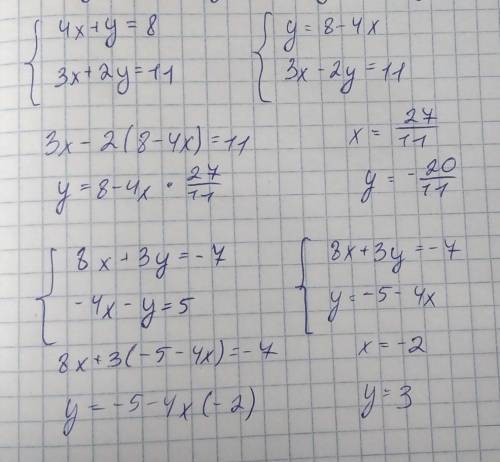 4x+y=8 y=8-4x
3x+2y=11 3x-2y=11
3x-2(8-4x)=11 x=27/11
y=8-4x·27/11 y=-20/11
8x+3y=-7 8x+3y=-7
-4x-y=5 y=-5-4x
8x+3(-5-4x)=-7 x=-2
y=-5-4x(-2) y=3